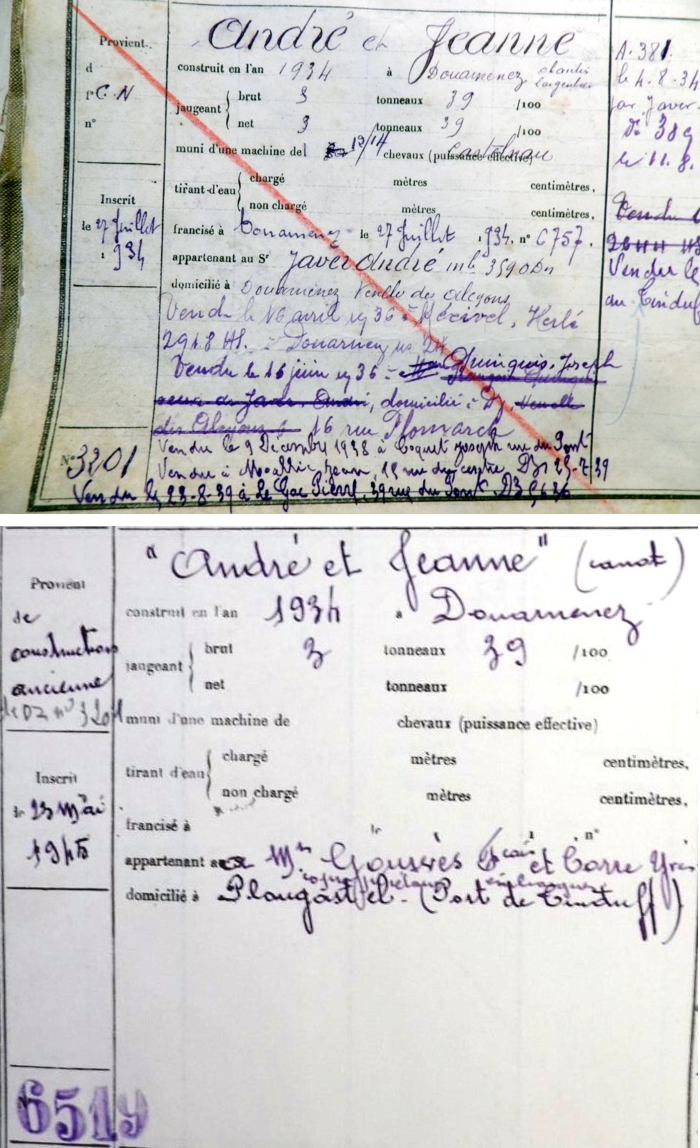 André et Jeanne
Provient
d
construit en l'an 1934 à Douarnenez chantier
C.N
jaugeant brut 3 tonneaux 39 /100
n°
net 3 tonneaux 39 /100
muni d'une machine de 13/14 chevaux (puissance effective)
tirant-d'eau chargé mètres centimètres,
non chargé mètres centimètres,
Inscrit
le 27 Juillet
1934
francisé à Douarnenez le 27 Juillet 1934. n° C757.
appartenant au Sr Javer André
domicilié à Douarnenez Venelle des Alcyons
Vendu le 16 avril 1936 à
2918 à Douarnenez
Vendu le 16 juin 1936 = Guinquis, Joseph
domicilié à Dz
16 rue Plomarch
Vendu le 9 Décembre 1938 à Coquet Joseph rue du Port
Vendu à Jean, 15 rue du centre Dz 25-7-39
Vendu le 23-8-39 à Le Gac Pierre, 39 rue du Port Dz
N° 3201
A. 381
le 4-8-34
par Javer
Dz 389
le 11.8.
Vendu le
au Tinduff
"André et Jeanne" (canot)
Provient
de
construction
ancienne
DZ n° 3201
construit en l'an 1934 à Douarnenez
jaugeant brut 3 tonneaux 39 /100
net tonneaux /100
muni d'une machine de chevaux (puissance effective)
tirant d'eau chargé mètres centimètres,
non chargé mètres centimètres,
Inscrit
le 23 Mai
1945
francisé à le n°
appartenant à Mrs Gourvès et Corre Yves
domicilié à Plougastel. (Port de Tinduff)
6519